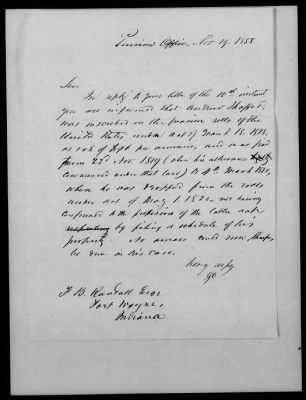 Pension Office, Nov 19, 1858
Sir.
In reply to your letter of the 10th instant
you are informed that Andrew
was inscribed on the pension rolls of the
United States under act of March 18. 1818.
at rate of $96 per annum, and was paid
from 22d Nov. 1819 (when his allowance
commenced under that law) to 4th March 1820,
when he was dropped from the rolls
under act of May 1. 1820. not having
conformed to the provision of the latter act
by filing a schedule of his
property. No arrears could now therefore
be due in his case.
Very resply
J. B. Randall Esqr
Fort Wayne,
Indiana.